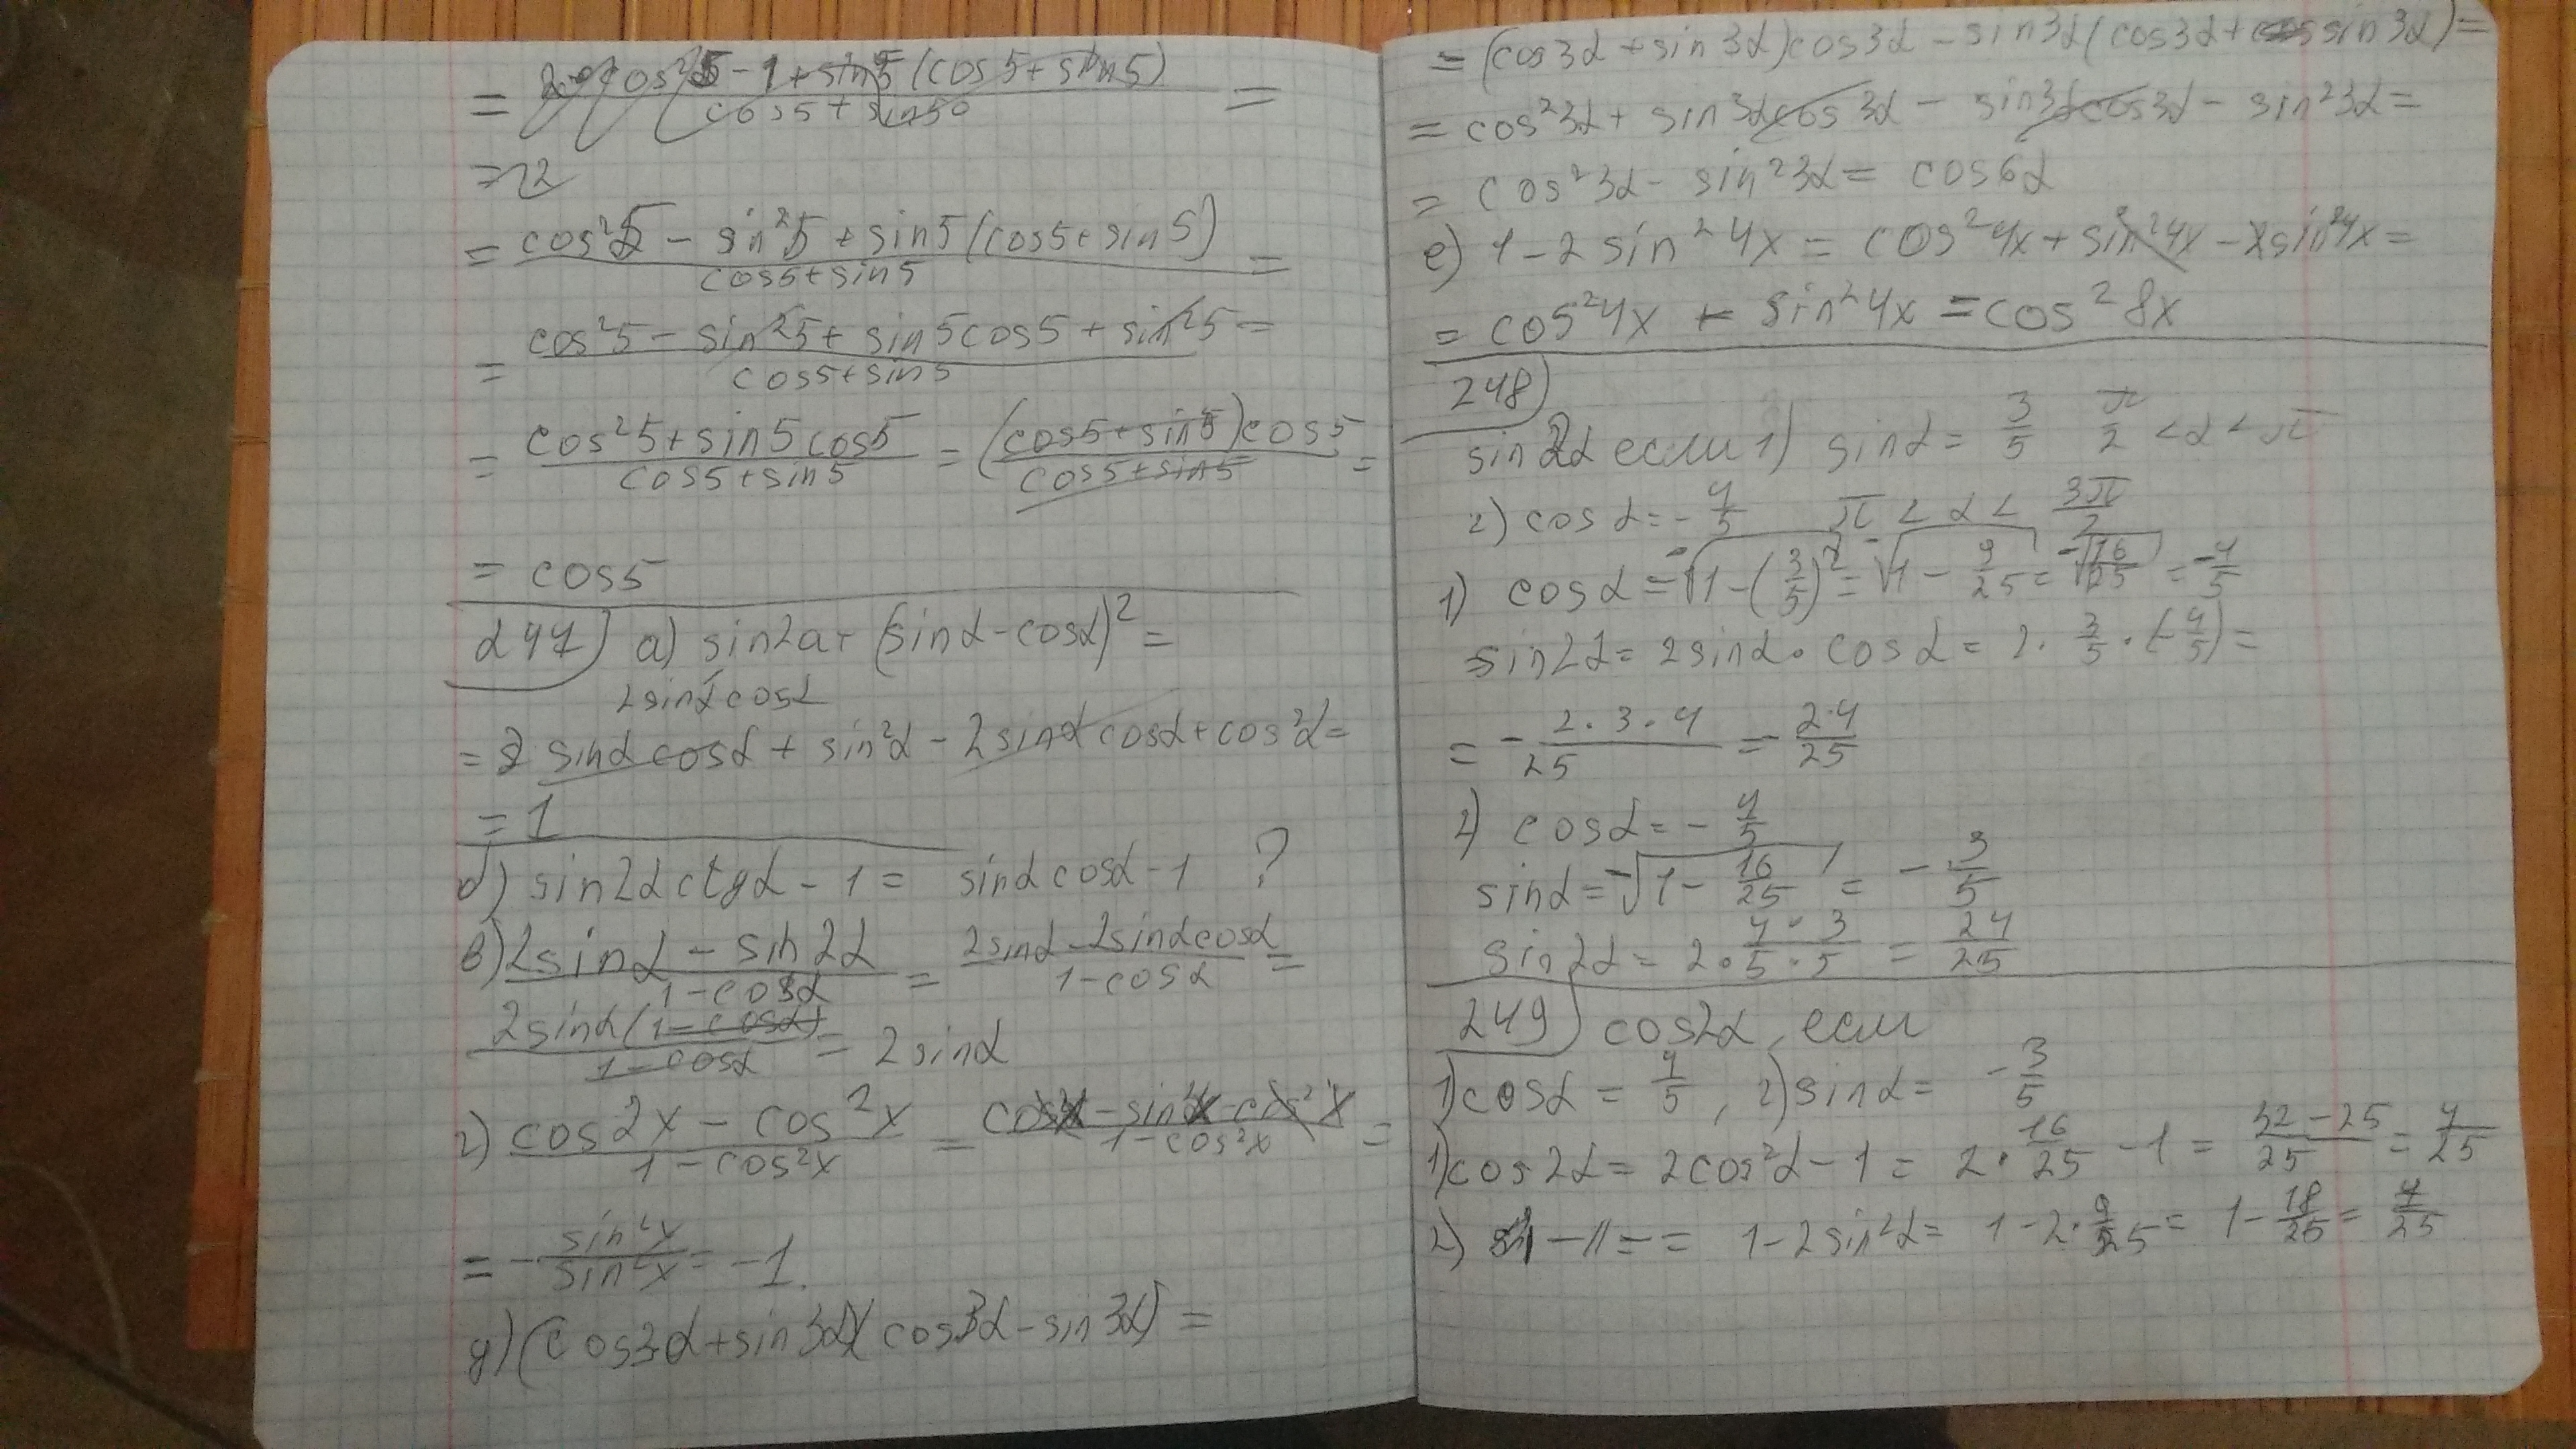 = cos²5 - 1 + sin5 (cos5 + sin5) / cos5 + sin5 =
= 2
= cos²5 - sin²5 + sin5 (cos5 + sin5) / cos5 + sin5 =
= cos²5 - sin²5 + sin5cos5 + sin²5 / cos5 + sin5 =
= cos²5 + sin5 cos5 / cos5 + sin5 = (cos5 + sin5)cos5 / cos5 + sin5 =
= cos5
247) а) sin2a + (sinα - cosα)² =
2sinαcosα
= 2 sinα cosα + sin²α - 2sinα cosα + cos²α =
= 1
б) sin2α ctgα - 1 = sinα cosα - 1 ?
в) 2sinα - sin2α / 1 - cosα = 2sinα - 2sinαcosα / 1 - cosα =
2sinα(1 - cosα) / 1 - cosα = 2sinα
г) cos2x - cos²x / 1 - cos²x = cos²x - sin²x - cos²x / 1 - cos²x =
= - sin²x / sin²x = -1.
д) (cos3α + sin3α)(cos3α - sin3α) =
= (cos3α + sin3α)cos3α - sin3α(cos3α + sin3α) =
= cos²3α + sin3αcos3α - sin3αcos3α - sin²3α =
= cos²3α - sin²3α = cos6α
е) 1 - 2 sin²4x = cos²4x + sin²4x - 2sin²4x =
= cos²4x - sin²4x = cos²8x
248)
sin2α если 1) sinα = 3/5 π/2 < α < π
2) cosα = -4/5 π < α < 3π/2
1) cosα = -√1 - (3/5)² = -√1 - 9/25 = -√16/25 = -4/5
sin2α = 2sinα · cosα = 2 · 3/5 · (-4/5) =
= - 2 · 3 · 4 / 25 = - 24/25
2) cosα = -4/5
sinα = -√1 - 16/25 = -3/5
sin2α = 2 · 4 · 3 / 5 · 5 = 24/25
249) cos2α, если
1) cosα = 4/5, 2) sinα = -3/5
1) cos2α = 2cos²α - 1 = 2 · 16/25 - 1 = 32 - 25 / 25 = 7/25
2) -11- = 1 - 2sin²α = 1 - 2 · 9/25 = 1 - 18/25 = 7/25